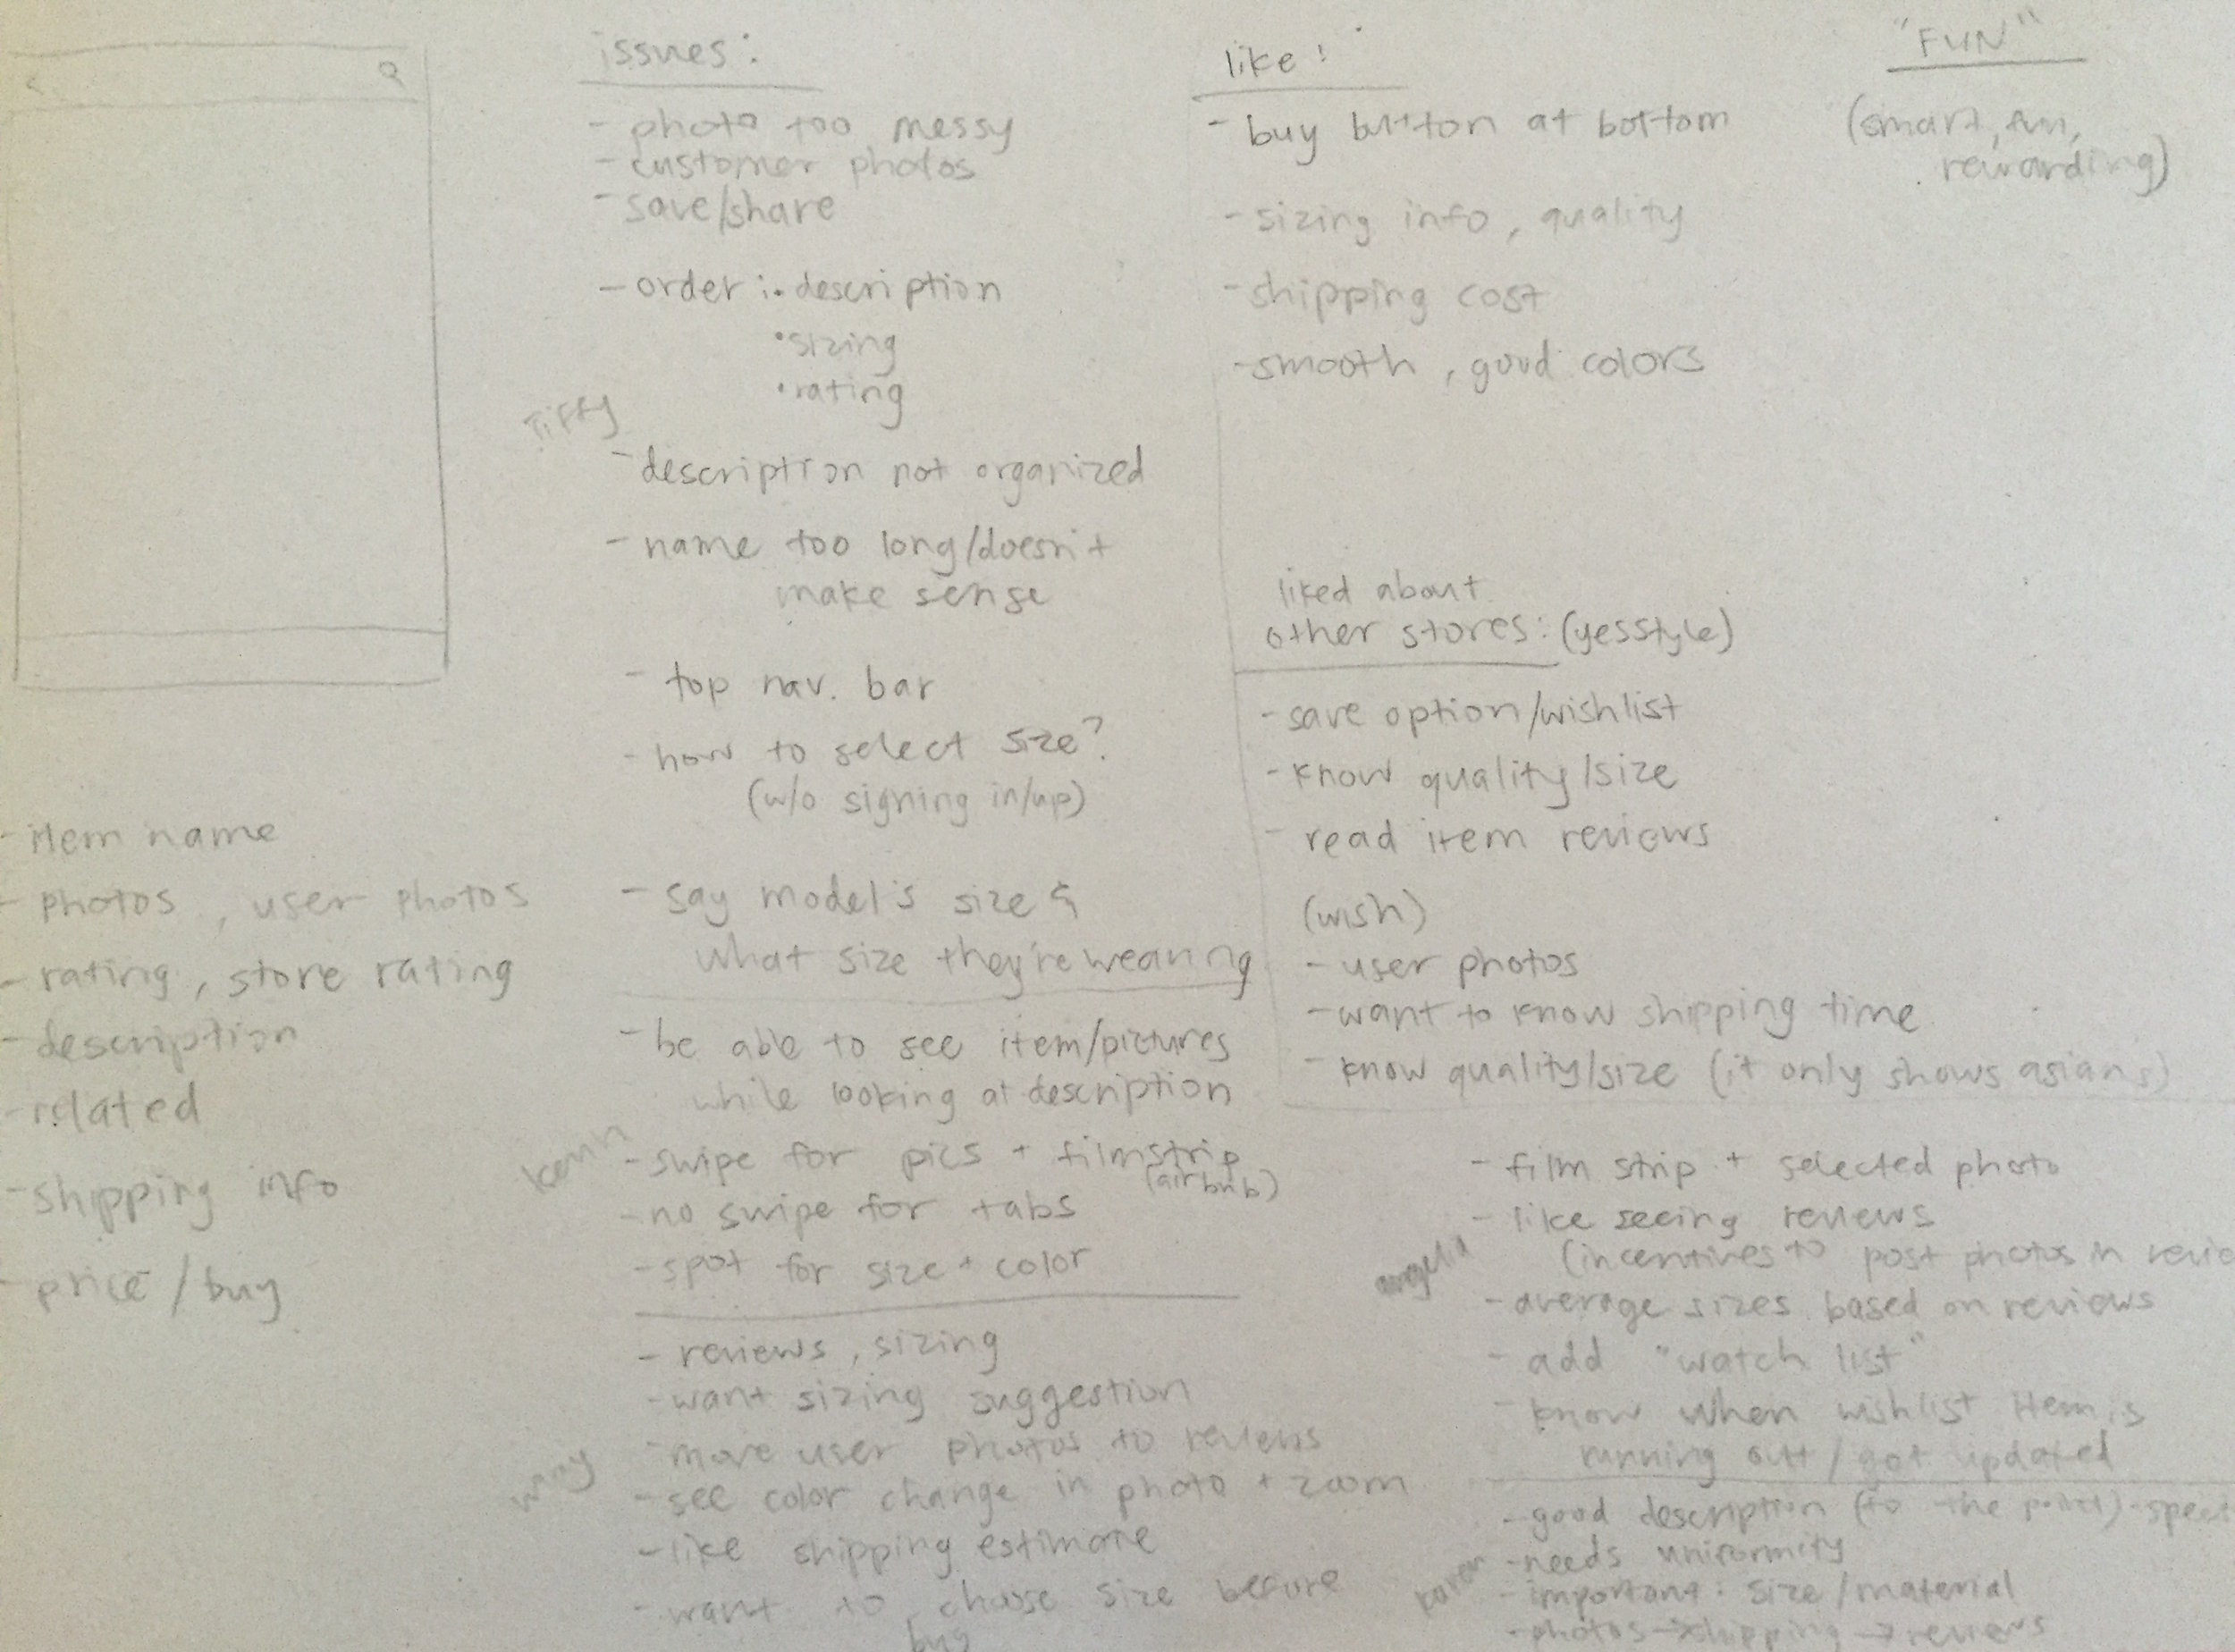 issues:
- photo too messy
- customer photos
- save/share
- order: • description
• sizing
• rating
Tiffy
- description not organized
- name too long/doesn't
make sense
- top nav. bar
- how to select size?
(w/o signing in/up)
- say model's size &
what size they're wearing
- be able to see item/pictures
while looking at description
- swipe for pics + filmstrip
(airbnb)
- no swipe for tabs
- spot for size + color
- reviews, sizing
- want sizing suggestion
- move user photos to reviews
- see color change in photo + zoom
- like shipping estimate
- want to choose size before
buy
like!
- buy button at bottom
- sizing info, quality
- shipping cost
- smooth, good colors
liked about
other stores: (yesstyle)
- save option/wishlist
- know quality/size
- read item reviews
(wish)
- user photos
- want to know shipping time
- know quality/size (it only shows asians)
- film strip + selected photo
- like seeing reviews
(incentives to post photos in
angela
- average sizes based on reviews
- add "watch list"
- know when wishlist item is
running out/got updated
- good description (to the point)
- needs uniformity
karen
- important: size/material
- photos → shipping → reviews
"FUN"
(smart, fun,
rewarding)
- item name
- photos, user photos
- rating, store rating
- description
- related
- shipping info
- price/buy